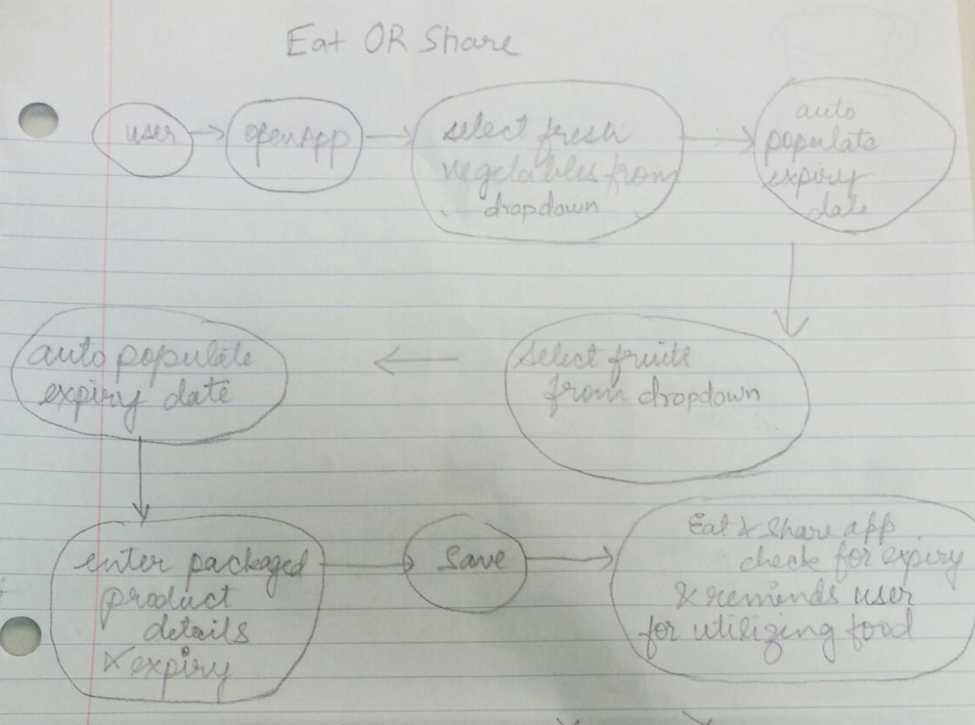 Eat OR Share
user
openApp
select fresh
vegetables from
dropdown
auto
populate
expiry
date
select fruits
from dropdown
auto populate
expiry date
enter packaged
product
details
& expiry
Save
Eat & Share app
check for expiry
& reminds user
for utilizing food